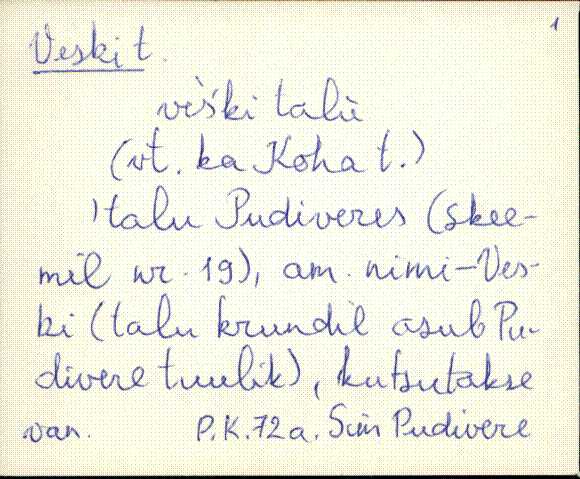 1
Veski t.
vèśki talù
(vt. ka Koha t.)
talu Pudiveres (skee-
mil nr. 19), am. nimi-Ves-
ki (talu krundil asub Pu-
divere tuulik), kutsutakse
van. P.K.72a. Sim Pudivere